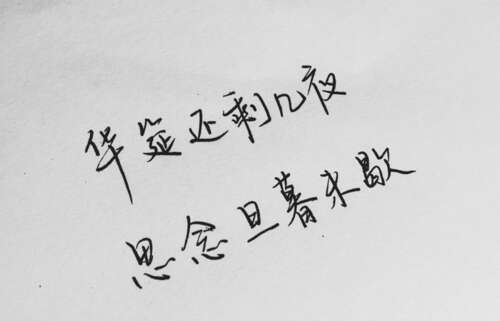 华筵还剩几夜
思念旦暮未歇